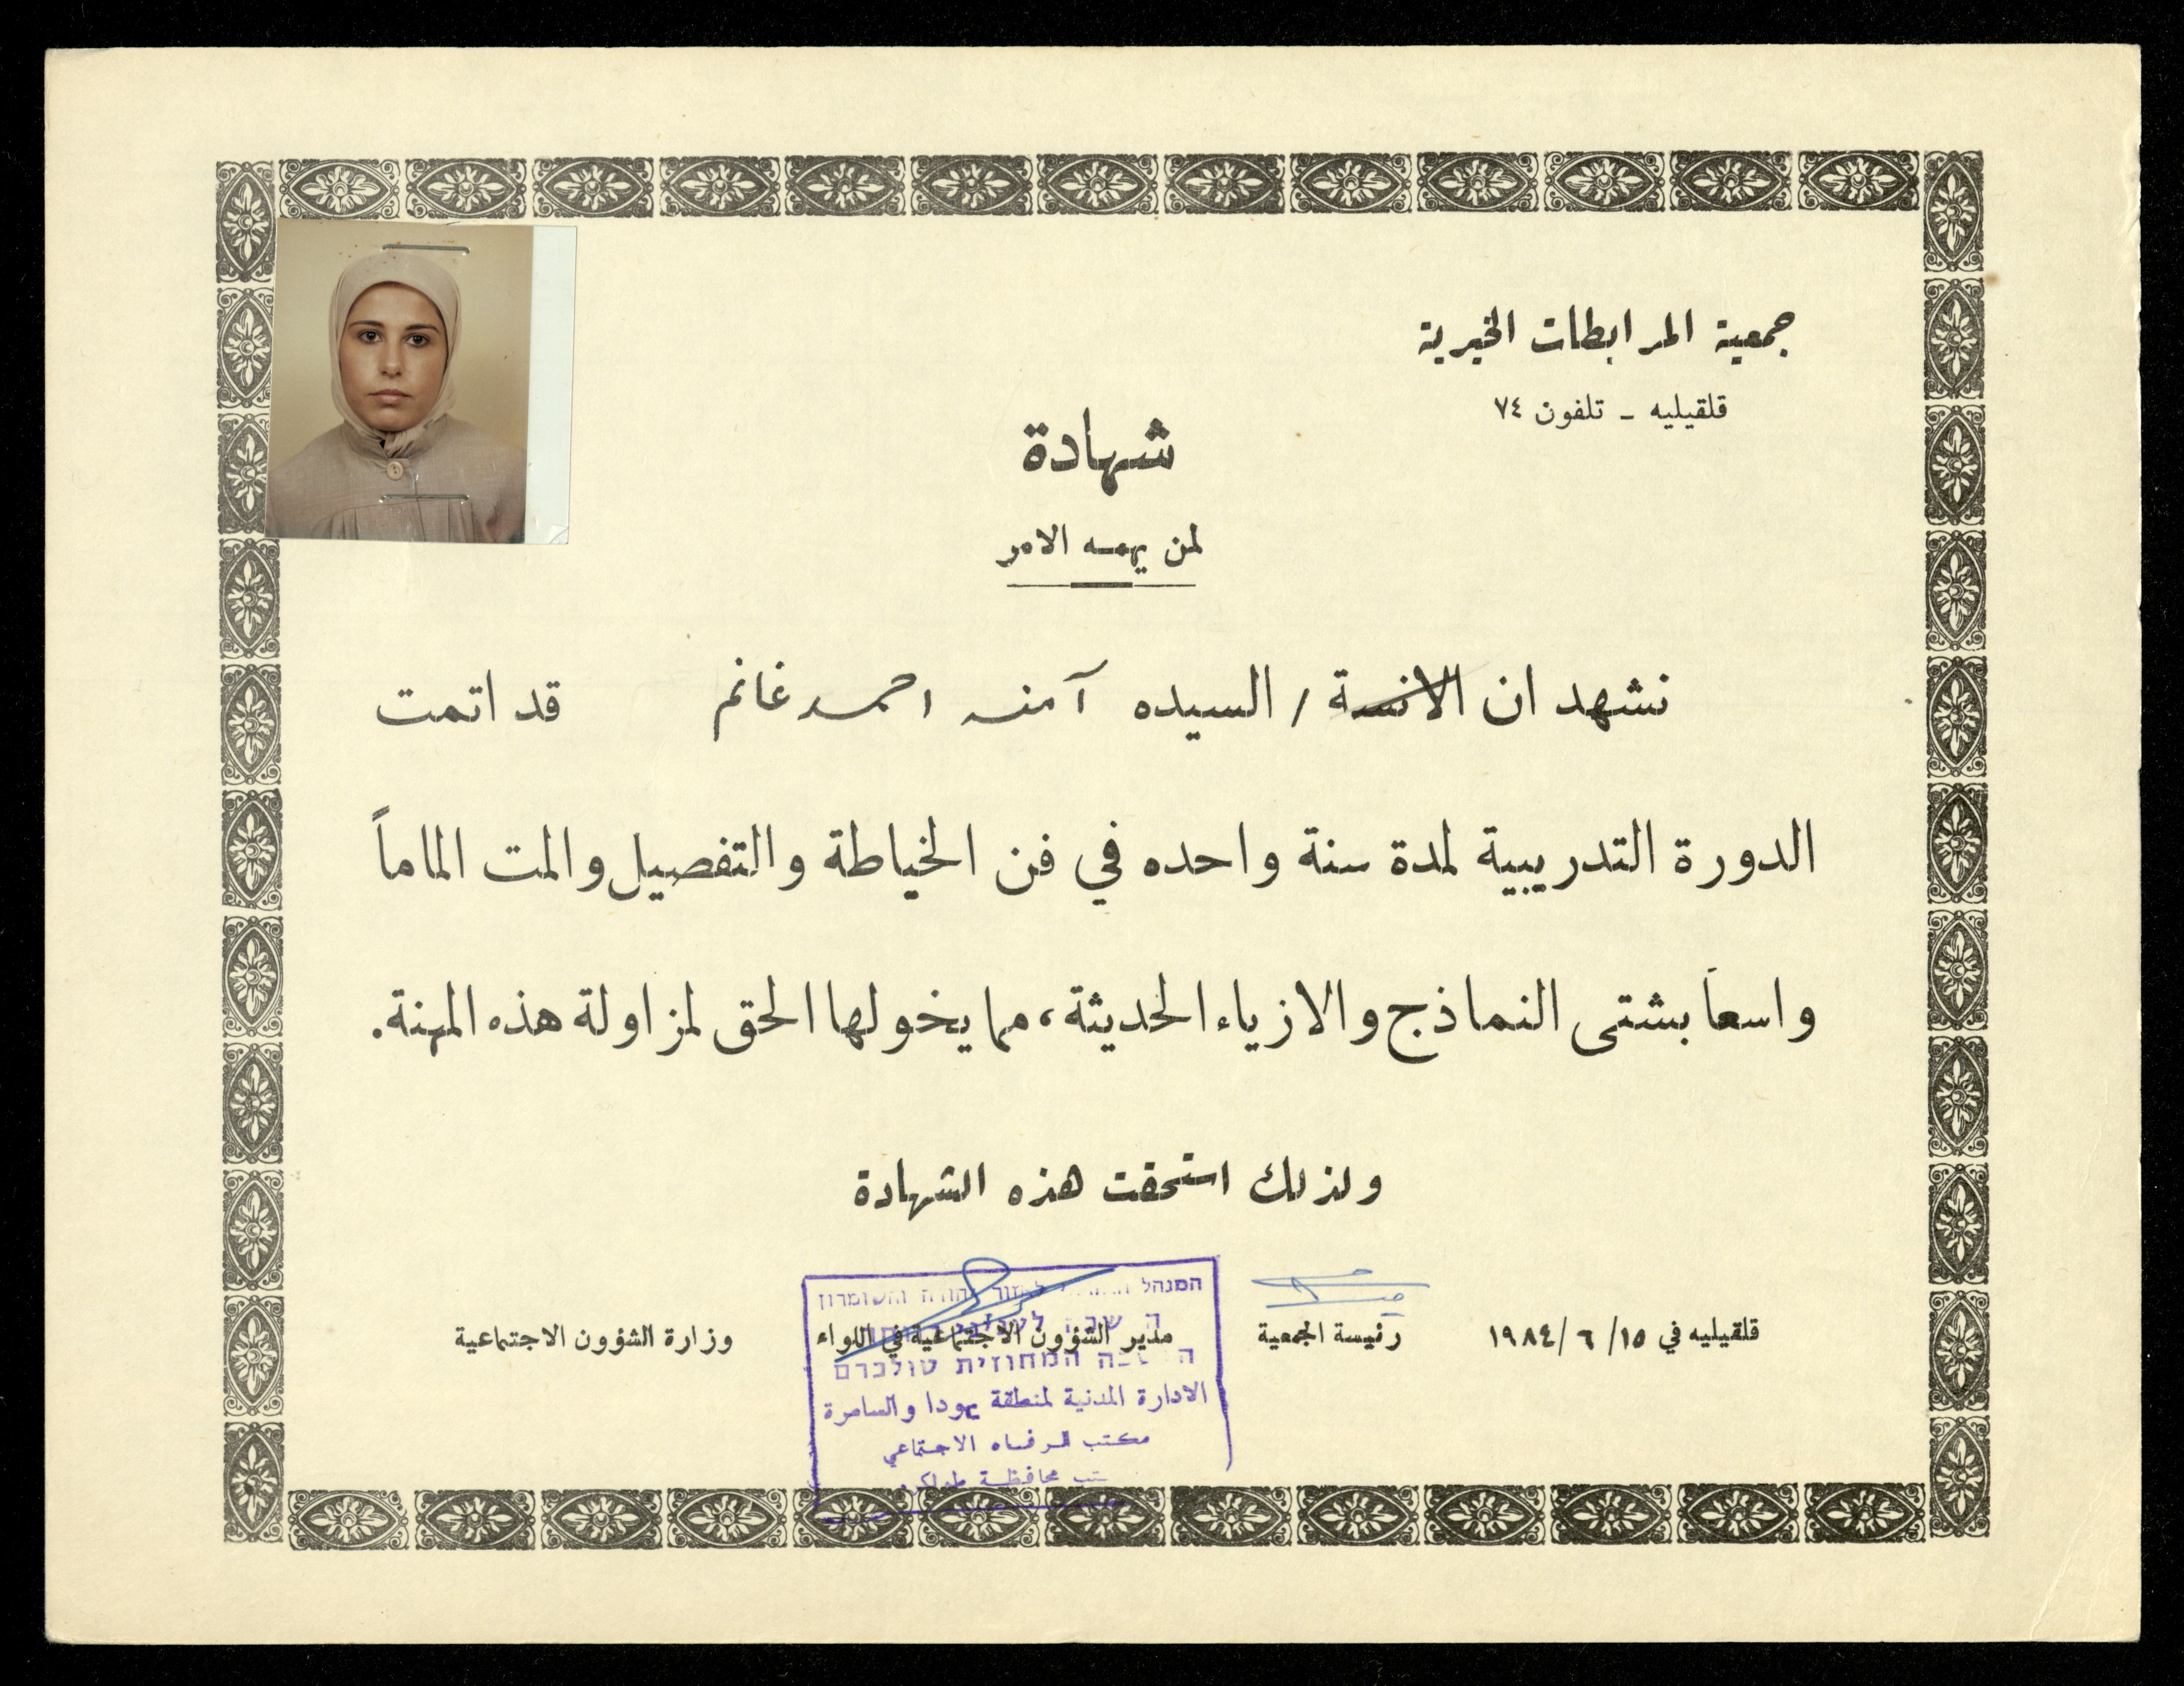 جمعية المرابطات الخيرية
قلقيليه - تلفون ٧٤
شهادة
لمن يهمه الامر
نشهد ان الانسة / السيده آمنه احمد غانم قد اتمت
الدورة التدريبية لمدة سنة واحده في فن الخياطة والتفصيل والمت الماماً
واسعاً بشتى النماذج والازياء الحديثة، مما يخولها الحق لمزاولة هذه المهنة.
ولذلك استحقت هذه الشهادة
قلقيليه في ١٥/ ٦ /١٩٨٤ رئيسة الجمعية مدير الشؤون الاجتماعية في اللواء وزارة الشؤون الاجتماعية
המנהל יהודה והשומרון
המחוזית טולכרם
الادارة المدنية لمنطقة يهودا والسامرة
مكتب الرفاه الاجتماعي
محافظة طولكرم